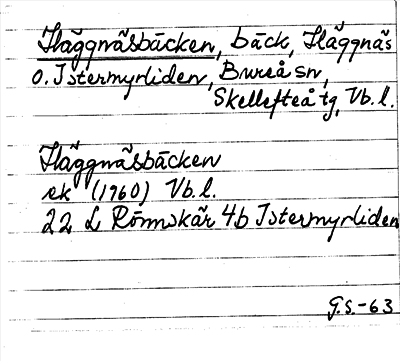 Häggnäsbäcken, bäck, Häggnäs
o. Istermyrliden, Bureå sn,
Skellefteå tg, Vb. l.
Häggnäsbäcken
ek (1960) Vb. l.
22 L Rönnskär 4b Istermyrliden
G.S.-63